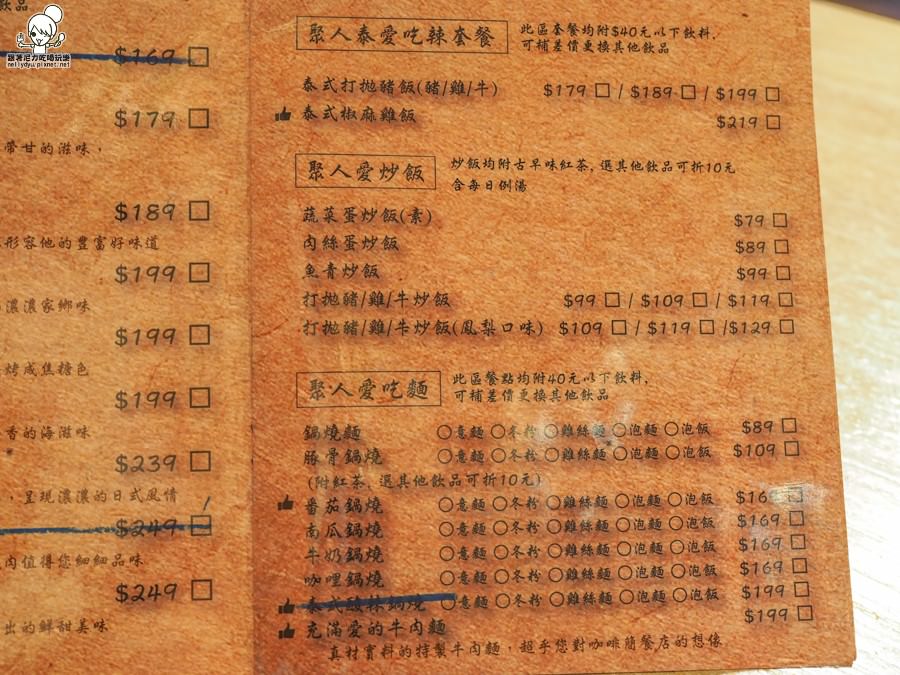 飲品
跟著尼力吃喝玩樂
nellydyu.pixnet.net
$169
$179
帶甘的滋味，
$189
形容他的豐富好味道
$199
濃濃家鄉味
$199
烤成焦糖色
$199
香的海滋味
$239
，呈現濃濃的日式風情
$249
肉值得您細細品味
$249
出的鮮甜美味
聚人泰愛吃辣套餐 此區套餐均附$40元以下飲料,
可補差價更換其他飲品
泰式打拋豬飯(豬/雞/牛) $179 / $189 / $199
泰式椒麻雞飯 $219
聚人愛炒飯 炒飯均附古早味紅茶, 選其他飲品可折10元
含每日例湯
蔬菜蛋炒飯(素) $79
肉絲蛋炒飯 $89
魚青炒飯 $99
打拋豬/雞/牛炒飯 $99 / $109 / $119
打拋豬/雞/牛炒飯(鳳梨口味) $109 / $119 / $129
聚人愛吃麵 此區餐點均附40元以下飲料,
可補差價更換其他飲品
鍋燒麵 ○意麵 ○冬粉 ○雞絲麵 ○泡麵 ○泡飯 $89
豚骨鍋燒 ○意麵 ○冬粉 ○雞絲麵 ○泡麵 ○泡飯 $109
(附紅茶, 選其他飲品可折10元)
番茄鍋燒 ○意麵 ○冬粉 ○雞絲麵 ○泡麵 ○泡飯
南瓜鍋燒 ○意麵 ○冬粉 ○雞絲麵 ○泡麵 ○泡飯 $169
牛奶鍋燒 ○意麵 ○冬粉 ○雞絲麵 ○泡麵 ○泡飯 $169
咖哩鍋燒 ○意麵 ○冬粉 ○雞絲麵 ○泡麵 ○泡飯 $169
泰式酸辣鍋燒 ○意麵 ○冬粉 ○雞絲麵 ○泡麵 ○泡飯 $199
充滿愛的牛肉麵 $199
真材實料的特製牛肉麵，超乎您對咖啡簡餐店的想像